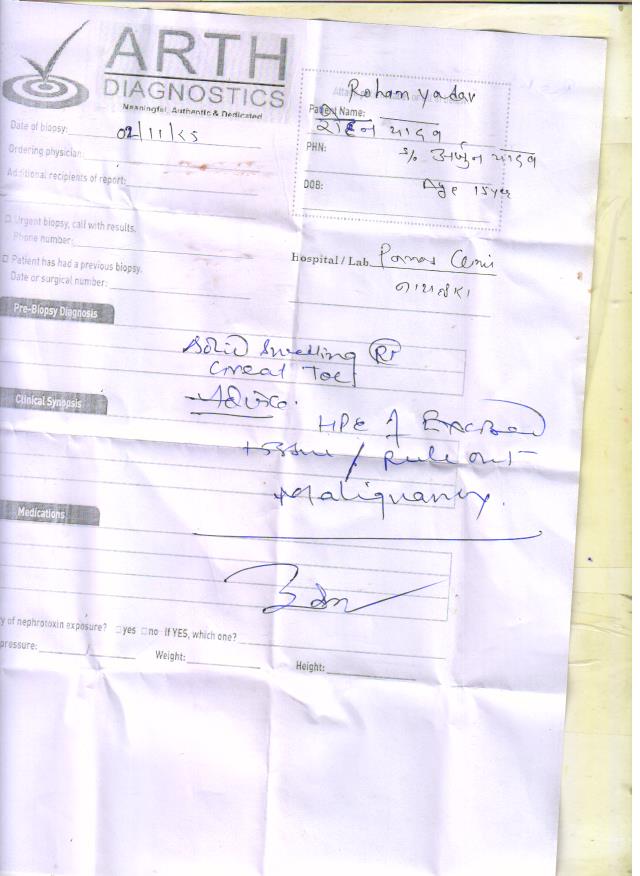 ARTH
DIAGNOSTICS
Meaningful, Authentic & Dedicated
Rohan Yadav
Patient Name:
यादव
PHN:
S/o यादव
DOB:
Age 15 yer
Date of biopsy:
Ordering physician:
Additional recipients of report:
Urgent biopsy, call with results.
Phone number:
Patient has had a previous biopsy.
Date or surgical number:
Hospital / Lab
Pre-Biopsy Diagnosis
Solid Swelling Rt
Great Toe
Clinical Synopsis
Advice.
HPE of Excised
tissue / Rule out
Malignancy.
Medications
y of nephrotoxin exposure? yes no If YES, which one?
pressure: Weight: Height: